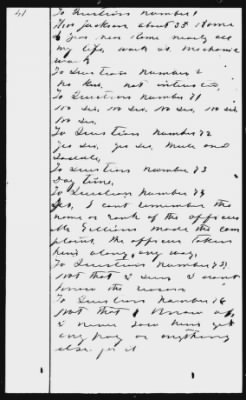 41
To Question number 1
Jackson about 35 Rome
my life, work at Mechanic
work
To Question Number 2
No Kin, not interested,
To Question Number 71
No Sir, No Sir, No Sir, No Sir
No Sir,
To Question Number 72
Yes Sir, Yes Sir, Mule and
Saddle,
To Question number 73
Day time,
To Question Number 74
Yes, I cant remember the
name or rank of the officer
Mr made the com
plaint, the officer taken
him along any way,
To Question Number 75
Not that I
know the reason
To Question Number 76
Not that I Know of,
I never saw him get
any pay or anything
else for it